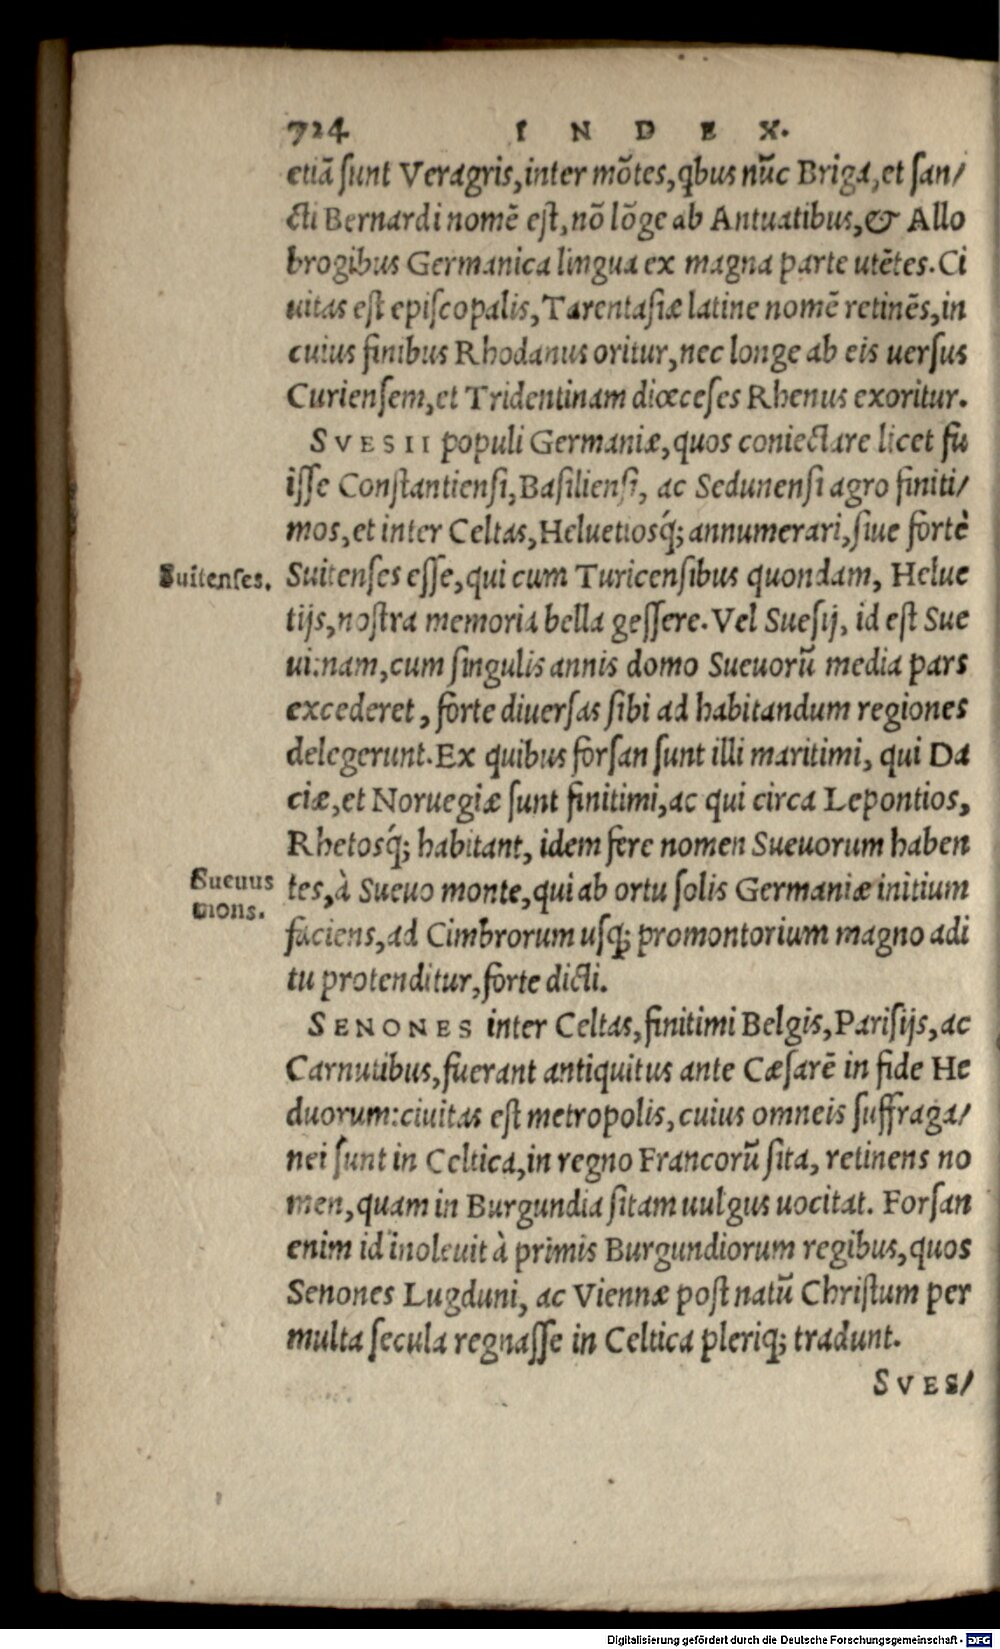 724 INDEX.
etiā ſunt Veragris, inter mōtes, qbus nūc Briga, et ſan/
cti Bernardi nomē eſt, nō lōge ab Antuatibus, & Allo
brogibus Germanica lingua ex magna parte utētes. Ci
uitas eſt epiſcopalis, Tarentaſiæ latine nomē retinēs, in
cuius finibus Rhodanus oritur, nec longe ab eis uerſus
Curienſem, et Tridentinam diœceſes Rhenus exoritur.
SVESII populi Germaniæ, quos coniectare licet fu
iſſe Conſtantienſi, Baſilienſi, ac Sedunenſi agro finiti/
mos, et inter Celtas, Heluetiosq́; annumerari, ſiue fortè
Suitenſes.
Suitenſes eſſe, qui cum Turicenſibus quondam, Helue
tijs, noſtra memoria bella geſſere. Vel Sueſij, id eſt Sue
ui: nam, cum ſingulis annis domo Sueuorū media pars
excederet, forte diuerſas ſibi ad habitandum regiones
delegerunt. Ex quibus forſan ſunt illi maritimi, qui Da
ciæ, et Noruegiæ ſunt finitimi, ac qui circa Lepontios,
Rhetosq́; habitant, idem fere nomen Sueuorum haben
Sueuus
mons.
tes, à Sueuo monte, qui ab ortu ſolis Germaniæ initium
faciens, ad Cimbrorum uſq; promontorium magno adi
tu protenditur, forte dicti.
SENONES inter Celtas, finitimi Belgis, Pariſijs, ac
Carnutibus, fuerant antiquitus ante Cæſarē in fide He
duorum: ciuitas eſt metropolis, cuius omneis ſuffraga/
nei ſunt in Celtica, in regno Francorū ſita, retinens no
men, quam in Burgundia ſitam uulgus uocitat. Forſan
enim id inoleuit à primis Burgundiorum regibus, quos
Senones Lugduni, ac Viennæ poſt natū Chriſtum per
multa ſecula regnaſſe in Celtica pleriq; tradunt.
SVES/
Digitalisierung gefördert durch die Deutsche Forschungsgemeinschaft - DFG